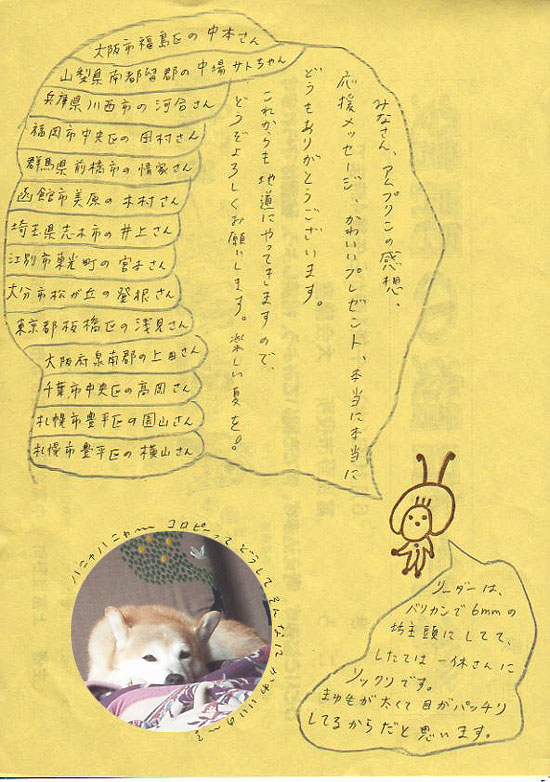 大阪市福島区の中本さん
山梨県南都留郡の中場サトちゃん
兵庫県川西市の河合さん
福岡市中央区の田村さん
群馬県前橋市の情家さん
函館市美原の木村さん
埼玉県志木市の井上さん
江別市東光町の宮本さん
大分市松が丘の登根さん
東京都板橋区の浅見さん
大阪府泉南郡の上田さん
千葉市中央区の高岡さん
札幌市豊平区の国山さん
札幌市豊平区の横山さん
みなさん、アムプリンの感想、
応援メッセージ、かわいいプレゼント、本当に本当に
どうもありがとうございます。
これからも地道にやってきますので、
どうぞよろしくお願いします。楽しい夏を!。
ハニャハニャ〜 コロピーってどうしてそんなにかわいいの〜?
リーダーは、
バリカンで6mmの
坊主頭にしてて、
したては一休さんに
ソックリです。
まゆ毛が太くて目がパッチリ
してるからだと思います。